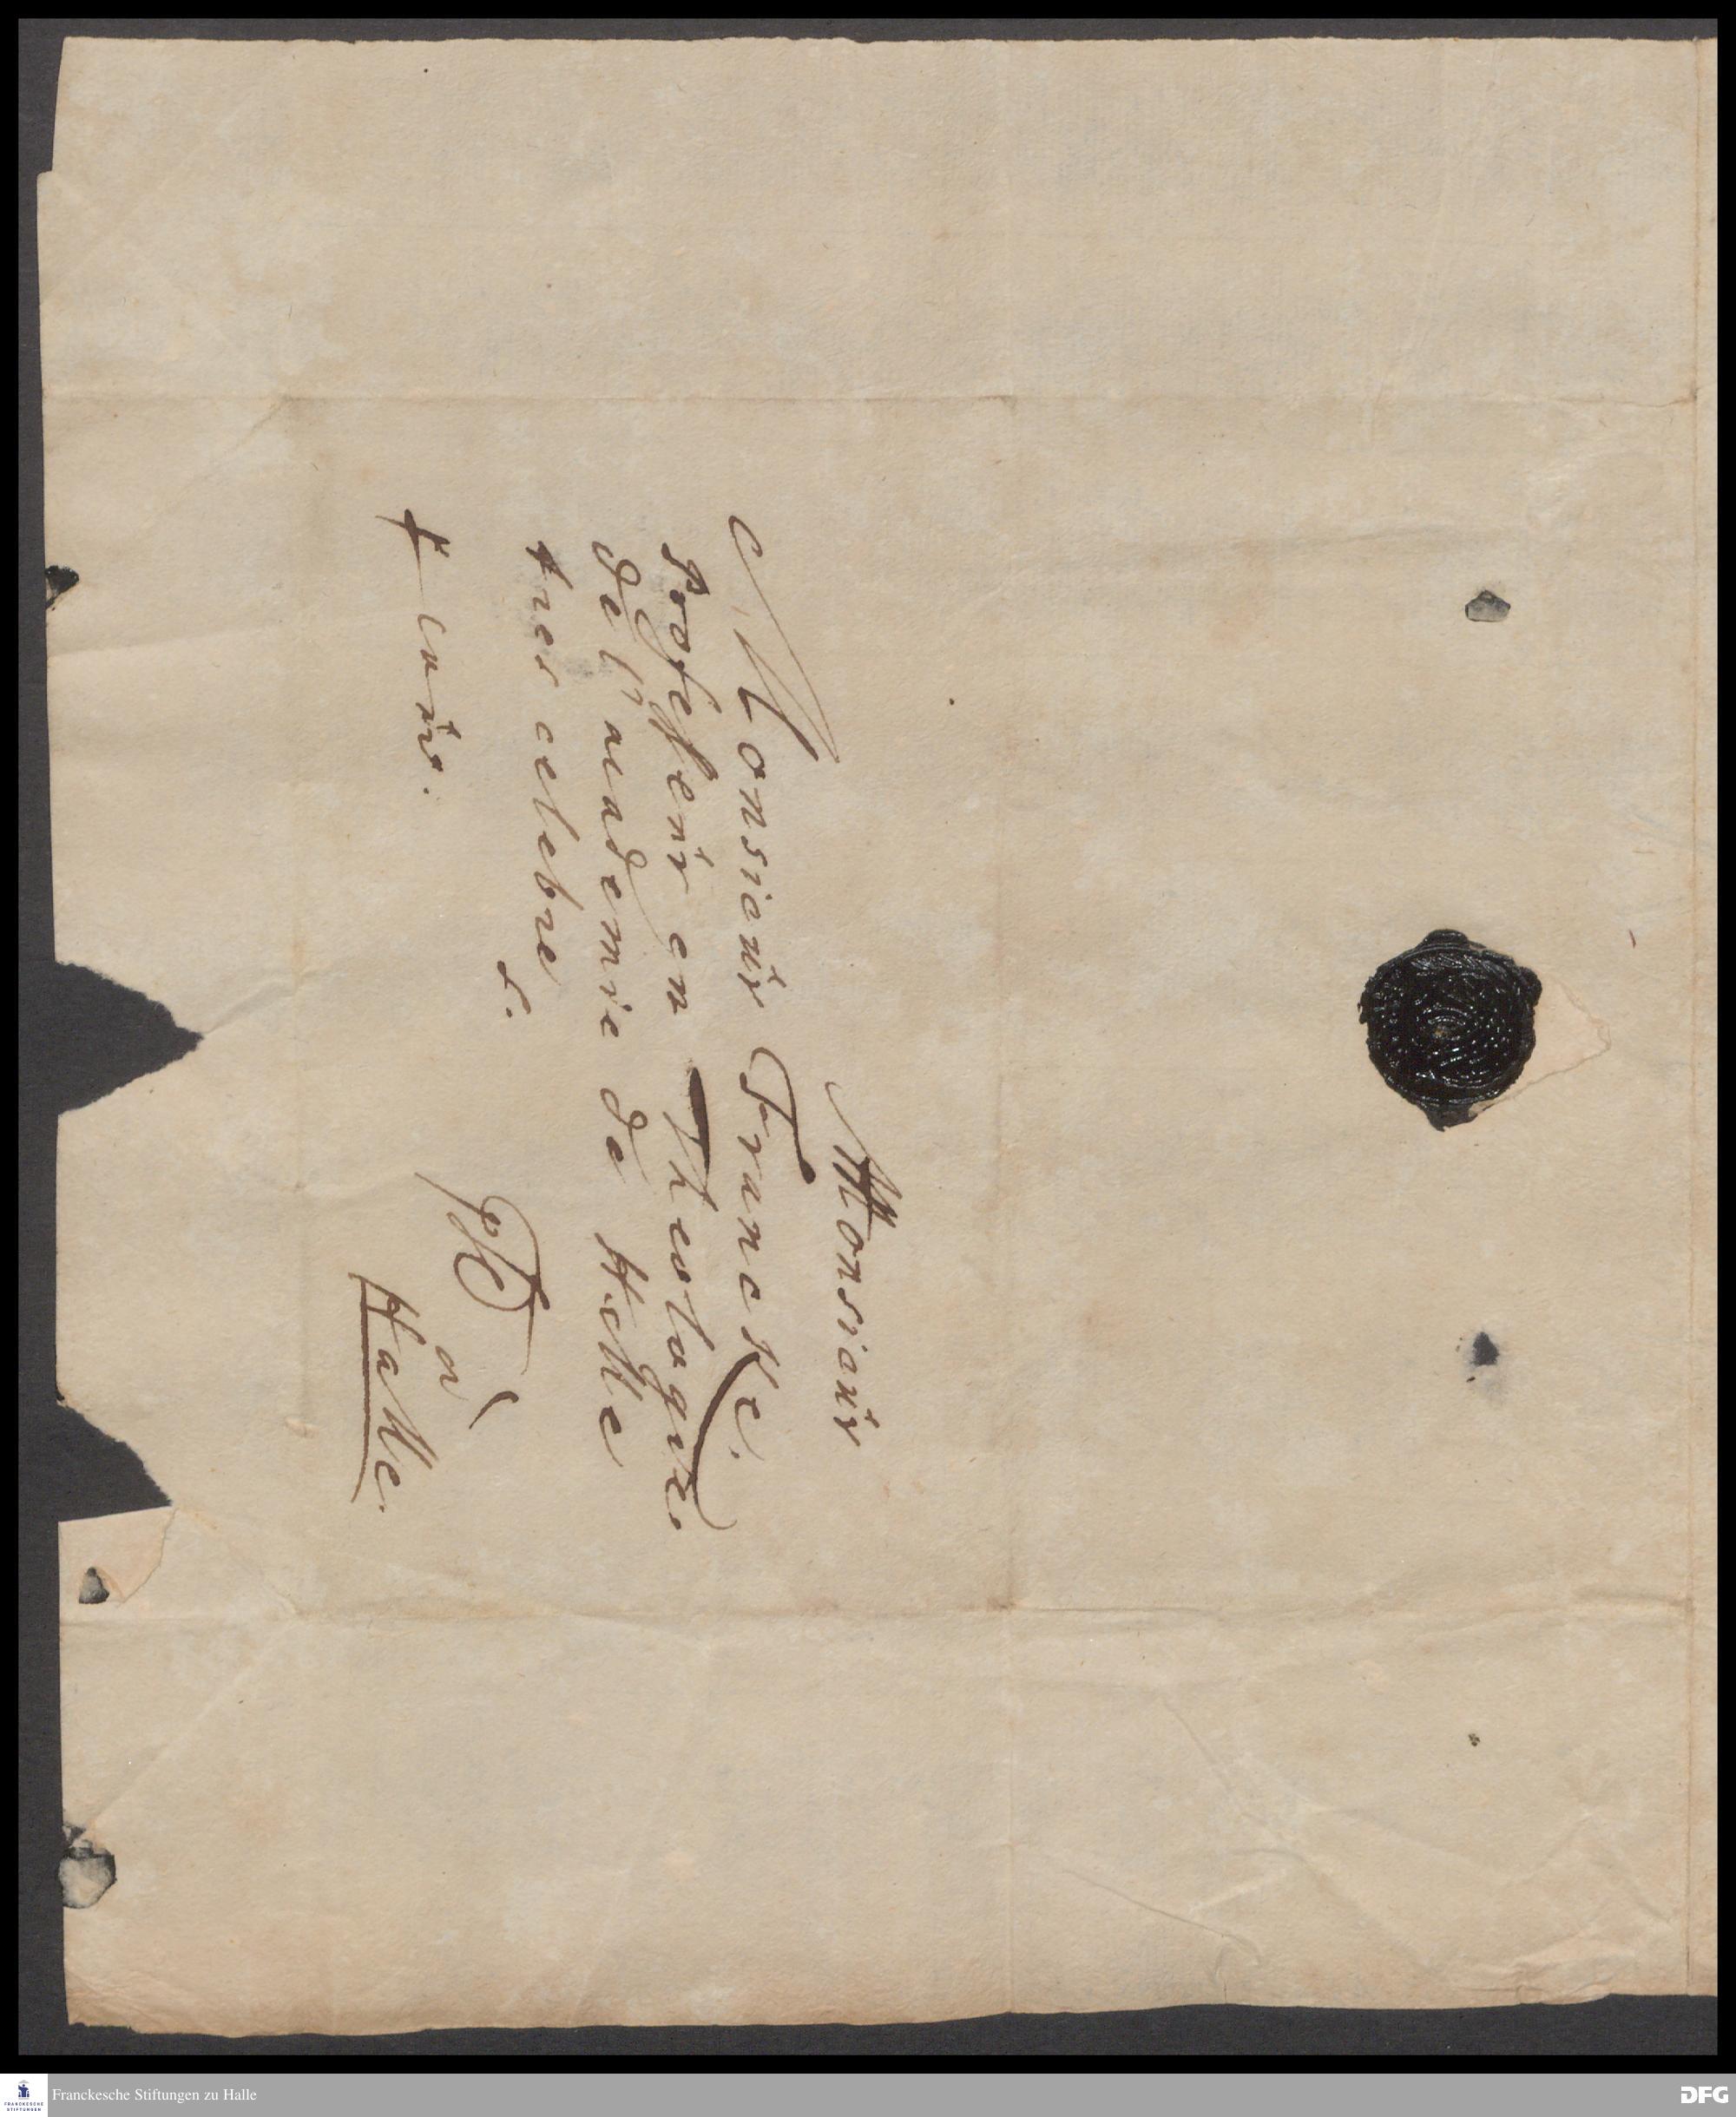 Monsieur
Monsieur Francke.
Professeur en Theologie.
de l'academie de Halle
tres celebre
p.
à
f couv.
Halle.
Franckesche Stiftungen zu Halle
FRANCKESCHE
STIFTUNGEN
DFG